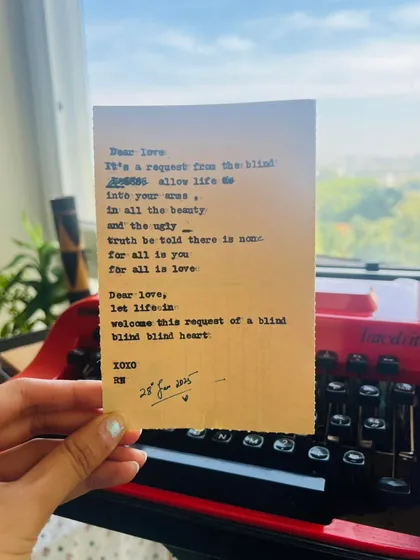 Dear love
It's a request from the blind
allow life
into your arms ,
in all the beauty
and the ugly _
truth be told there is none
for all is you
for all is love
Dear love,
let life in
welcome this request of a blind
blind blind heart
XOXO
RN
28 Jan 2025